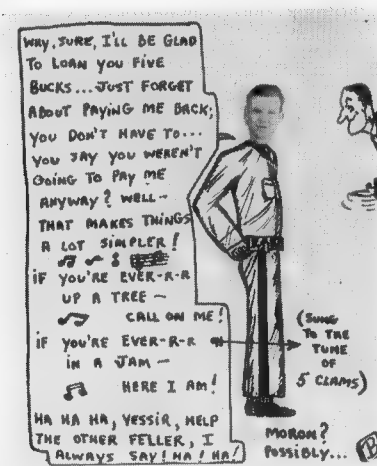 WHY, SURE, I'LL BE GLAD
TO LOAN YOU FIVE
BUCKS... JUST FORGET
ABOUT PAYING ME BACK;
YOU DON'T HAVE TO...
YOU SAY YOU WEREN'T
GOING TO PAY ME
ANYWAY? WELL-
THAT MAKES THINGS
A LOT SIMPLER!
IF YOU'RE EVER-R-R
UP A TREE -
CALL ON ME!
IF YOU'RE EVER-R-R
IN A JAM -
HERE I AM!
HA HA HA, YESSIR, HELP
THE OTHER FELLER, I
ALWAYS SAY! HA! HA!
(SUNG
TO THE
TUNE
OF
5 CLAMS)
MORON?
POSSIBLY...